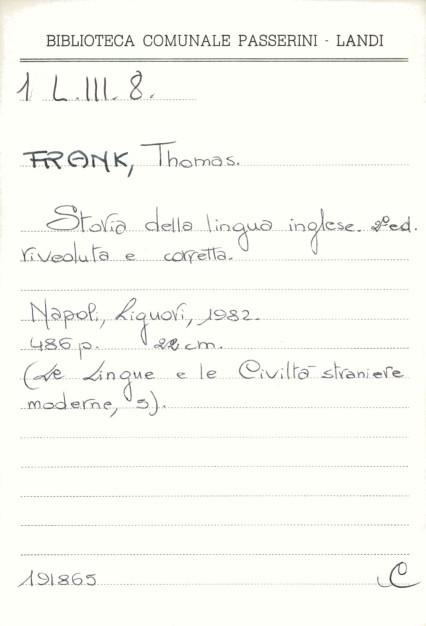 BIBLIOTECA COMUNALE PASSERINI - LANDI
1 L.III.8.
FRANK, Thomas.
Storia della lingua inglese. 2ª ed.
riveduta e corretta.
Napoli, Liguori, 1982.
486 p. 22 cm.
(Le Lingue e le Civiltà straniere
moderne, 5).
191865 C